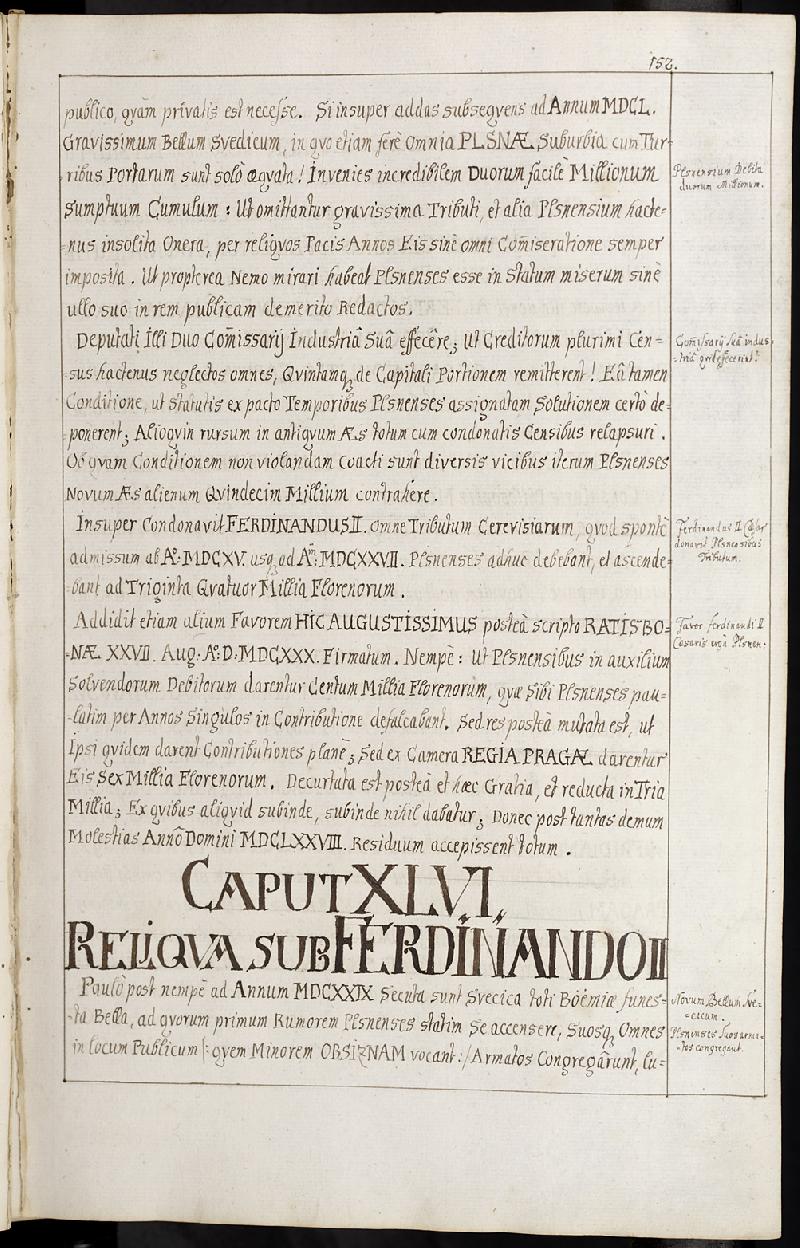 152.
publico, qvàm privatis est necesse. Si insuper addas subseqvens ad Annum MDCL.
Gravissimum Bellum Svedicum, in qvo etiam ferè Omnia PLSNÆ Suburbia cum Tur-
ribus Portarum sunt solô æqvata! Invenies incredibilem Duorum facilè Millionum
Sumptuum Cumulum: Ut omittantur gravissima Tributi, et alia Plsnensium hacte-
-nus insolita Onera, per reliqvos Pacis Annos Eis sinè omni Com̃iseratione semper
imposita. Ut propterea Nemo mirari habeat Plsnenses esse in Statum miserum sinè
ullo suo in rem publicam demerito Redactos.
Deputati Illi Duo Com̃issarij Industriâ Suâ effecêre; ut Creditorum plurimi Cen=
-sus hactenus neglectos omnes, Qvintamq; de Capitali Portionem remitterent! Eâ tamen
Conditione, ut statutis ex pacto Temporibus Plsnenses assignatam Solutionem certò de-
-ponerent; Alioqvin rursum in antiqvum Æs totum cum condonatis Censibus relapsuri.
Ob qvam Conditionem non violandam coacti sunt diversis vicibus iterum Plsnenses
Novum Æs alienum Qvindecim Millium contrahere.
Insuper Condonavit FERDINANDUS II. omne Tributum Cerevisiarum, qvod spontè
admissum ab Aº. MDCXV. usq; ad Aⁿ. MDCXXVII. Plsnenses adhuc debebant, et ascende-
-bant ad Triginta Qvatuor Millia Florenorum.
Addidit etiam alium Favorem HIC AUGUSTISSIMUS posteà scripto RATISBO-
-NÆ XXVII. Aug: Aº: D: MDCXXX. Firmatum. Nempè: ut Plsnensibus in auxilium
Solvendorum Debitorum darentur Centum Millia Florenorum, qvæ Sibi Plsnenses pau-
-latim per Annos Singulos in Contributione defalcabant. Sed res posteà mutata est, ut
Ipsi qvidem darent Contributiones planè; Sed ex Camera REGIA PRAGÆ darentur
Eis Sex Millia Florenorum. Decurtata est posteà et hæc Gratia, et reducta in Tria
Millia; Ex qvibus aliqvid subinde, subinde nihil dabatur; Donec post tantas demum
Molestias Anno Domini MDCLXXVIII. Residuum accepissent totum.
CAPUT XLVI.
RELIQVA SUB FERDINANDO II
Paulò post nempè ad Annum MDCXXIX Secuta sunt Svecica toti Böemiæ funes-
-ta Bella, ad qvorum primum Rumorem Plsnenses statim se accensere, Suosq; Omnes
in locum Publicum /: qvem Minorem OBSIZNAM vocant :/ Armatos Congregârunt, lu=
Plsnensium Debita
duorum Millionum.
Com̃issarij suâ indus
-triâ qvid effecerint!
Ferdinandus II Cæsar
donavit Plsnensibus
Tributum.
Favor Ferdinandi II
Cæsaris ergà Plsnen-
Novum Bellum Sve-
-cicum.
Plsnenses Suos arma-
-tos congregant.